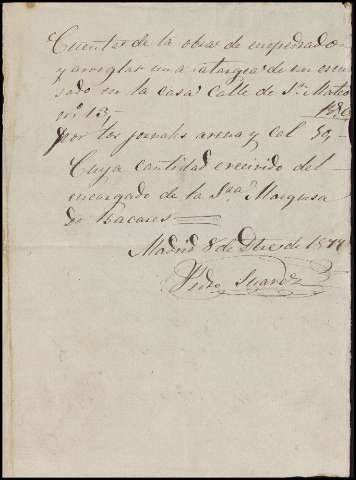 Cuenta de la obra de empedrado
y arreglar una atargea de un escu
sado en la casa Calle de Sn Mateo
nº 13,-
por los jornales arena y cal 50,-
Cuya cantidad e recivido del
encargado de la Sra Marquesa
de Bacares
Madrid 8 de Dbre de 1877
Pedro Suarez